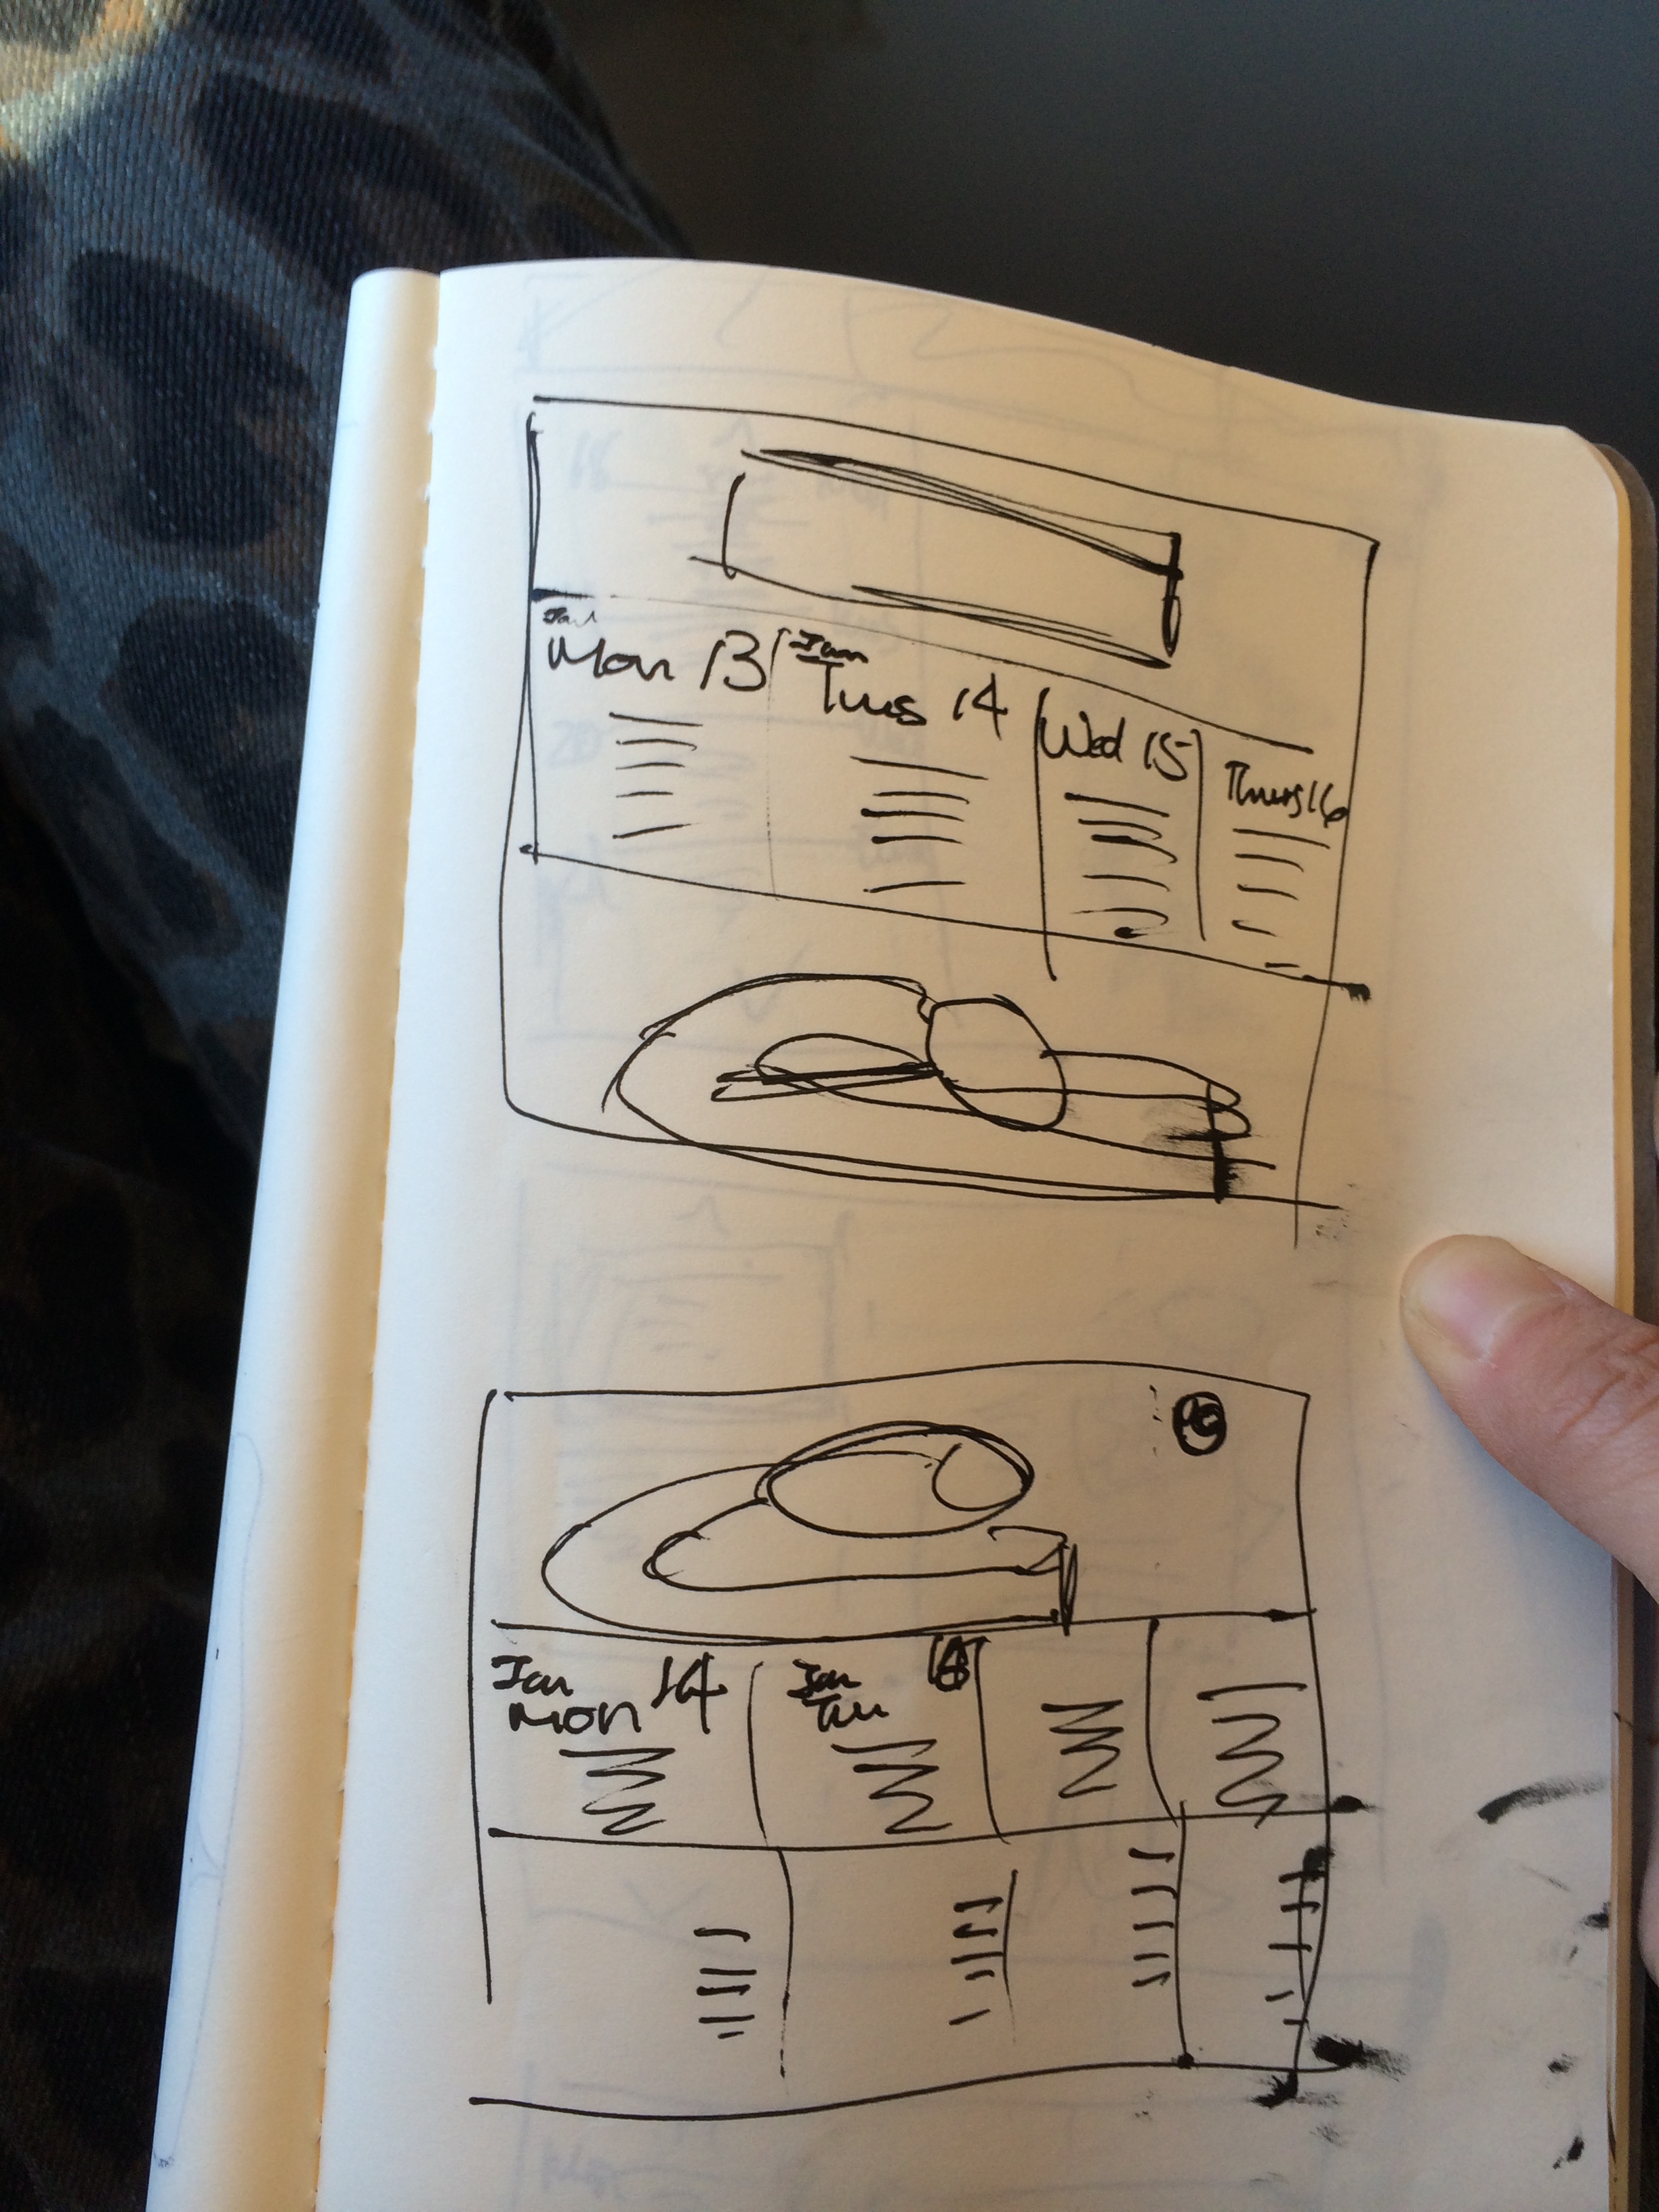 Jan
Mon 13
Jan
Tues 14
Wed 15
Thurs 16
Jan
Mon 14
Jan
Tu